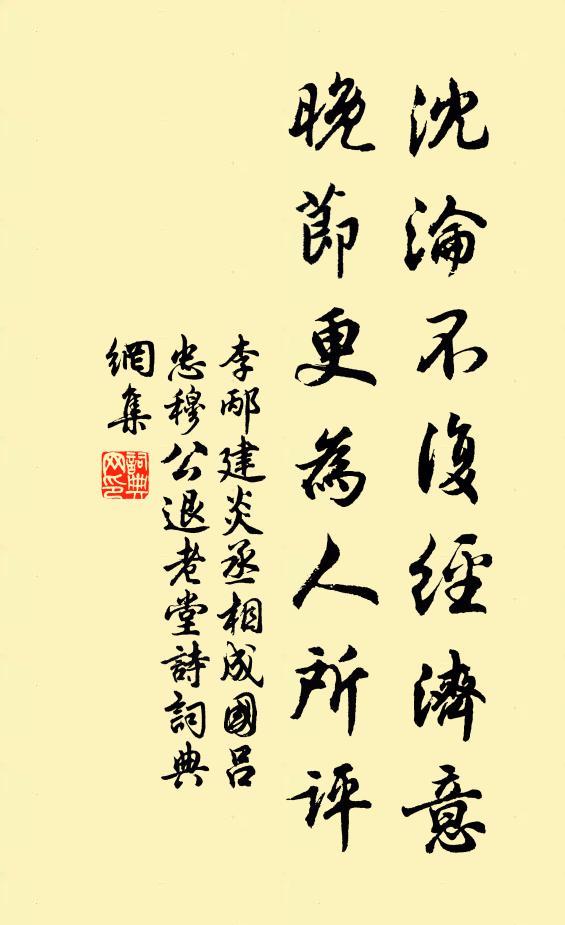 沈淪不復經濟意
晚節更為人所評
李邴建炎丞相成國呂
忠穆公退老堂詩詞典
網集
詞典網印